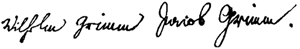 Wilhelm Grimm Jacob Grimm.